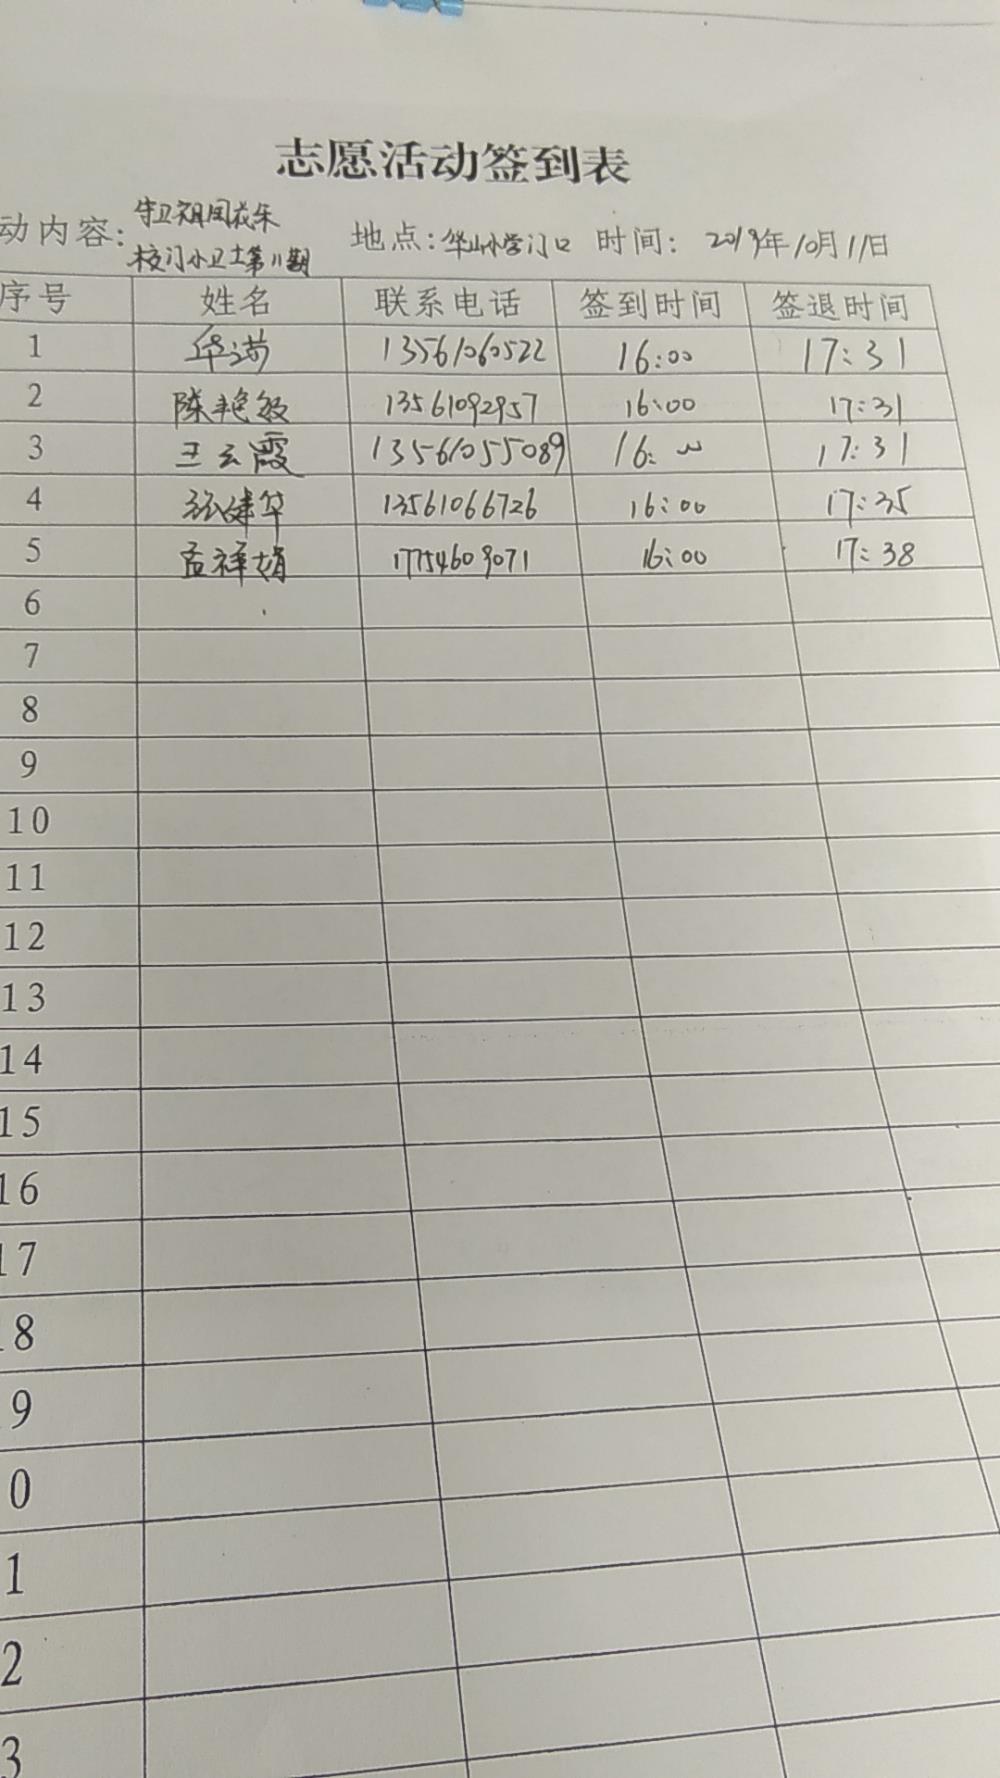 志愿活动签到表
动内容: 守卫祖国花朵 地点: 华山小学门口 时间: 2019年10月11日
校门小卫士第11期
序号 姓名 联系电话 签到时间 签退时间
1 华满 13561060522 16:00 17:31
2 陈艳敏 13561092957 16:00 17:31
3 王云霞 13561055089 16:00 17:31
4 张健华 13561066726 16:00 17:35
5 孟祥娟 17754609071 16:00 17:38
6
7
8
9
10
11
12
13
14
15
16
17
18
9
0
1
2
3